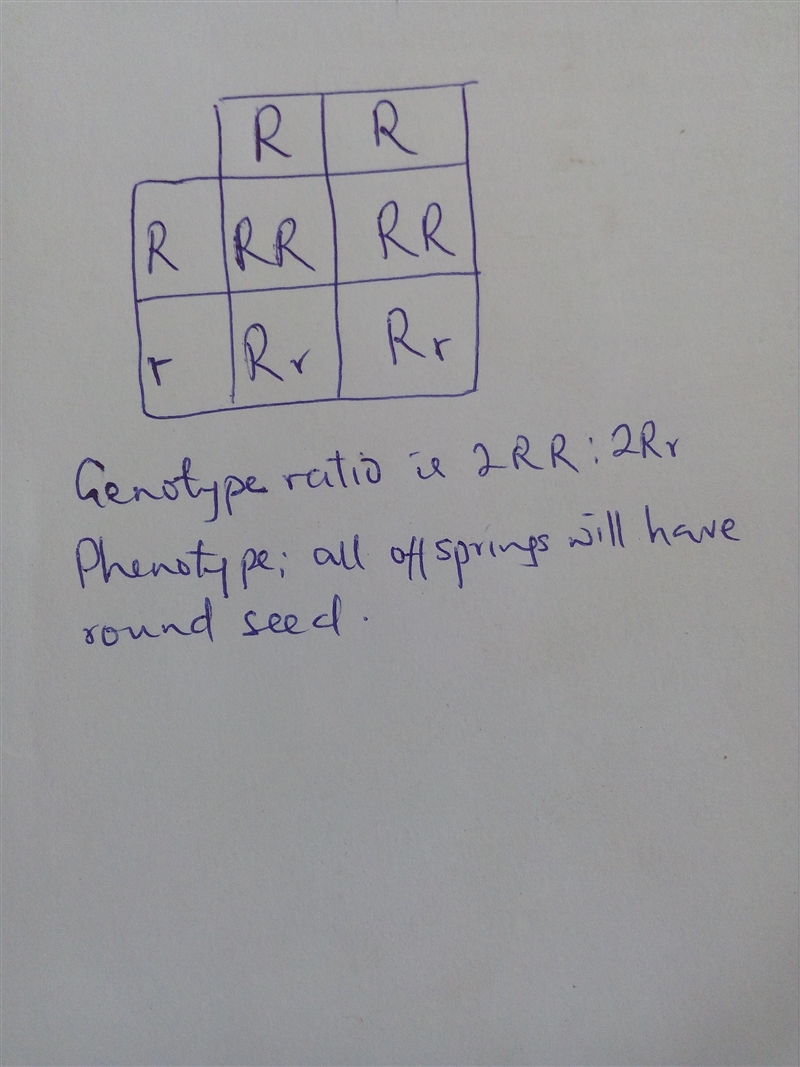 R R
R RR RR
r Rr Rr
Genotype ratio is 2RR : 2Rr
Phenotype; all offsprings will have
round seed.